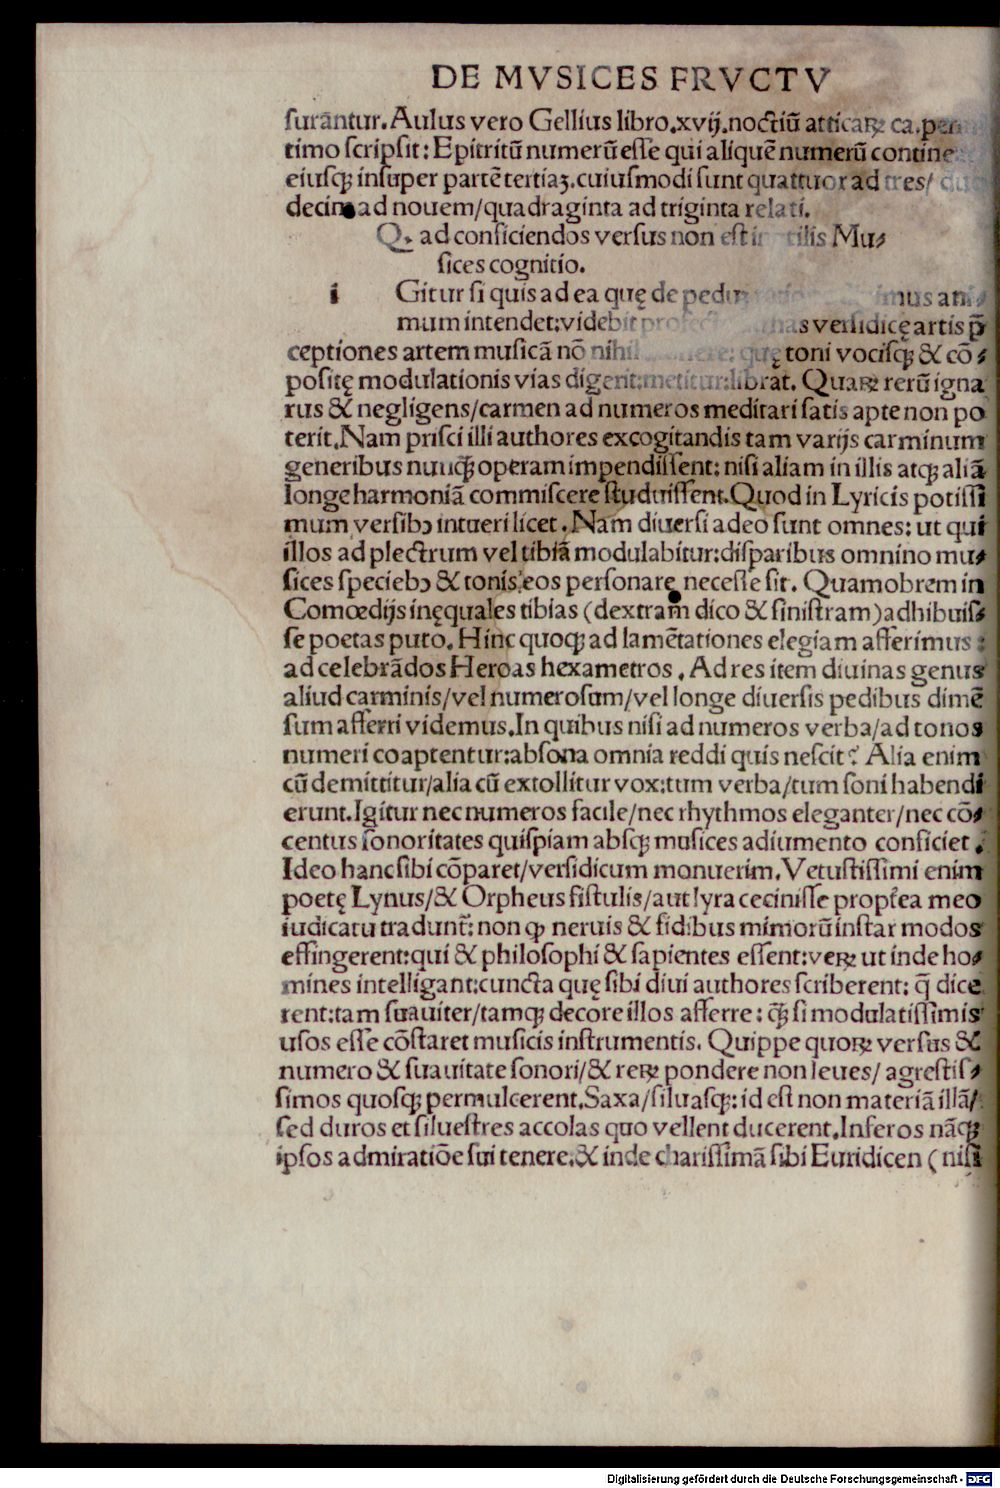 DE MVSICES FRVCTV
surantur. Aulus vero Gellius libro.xvij.noctiū atticaꝝ ca.pen
timo scripsit: Epitritū numerū esse qui aliquē numerū contine
eiusqꝫ insuper partē tertiaꝫ.cuiusmodi sunt quattuor ad tres/ duo
decim ad nouem/quadraginta ad triginta relati.
Q ad conficiendos versus non est ilis Mu⸗
sices cognitio.
i Gitur si quis ad ea quę de pedum mus ani⸗
mum intendet:videbit versidicę artis p̄
ceptiones artem musicā nō nihil quę toni vocisqꝫ & cō⸗
positę modulationis vias digerit:metitur:librat. Quaꝝ rerū igna
rus & negligens/carmen ad numeros meditari satis apte non po
terit.Nam prisci illi authores excogitandis tam varijs carminum
generibus nunqꝫ̄ operam impendissent: nisi aliam in illis atqꝫ aliā
longe harmoniā commiscere studuissent.Quod in Lyricis potissi
mum versibɔ intueri licet. Nam diuersi adeo sunt omnes: ut qui
illos ad plectrum vel tibiā modulabitur:disparibus omnino mu⸗
sices speciebɔ & tonis:eos personare necesse sit. Quamobrem in
Comœdijs inęquales tibias (dextram dico & sinistram)adhibuis⸗
se poetas puto. Hinc quoqꝫ ad lamētationes elegiam afferimus :
ad celebrādos Heroas hexametros . Ad res item diuinas genus
aliud carminis/vel numerosum/vel longe diuersis pedibus dimē
sum afferri videmus.In quibus nisi ad numeros verba/ad tonos
numeri coaptentur:absona omnia reddi quis nescit? Alia enim
cū demittitur/alia cū extollitur vox:tum verba/tum soni habendi
erunt.Igitur nec numeros facile/nec rhythmos eleganter/nec cō⸗
centus sonoritates quispiam absqꝫ musices adiumento conficiet .
Ideo hanc sibi cōparet/versidicum monuerim. Vetustissimi enim
poetę Lynus/& Orpheus fistulis/aut lyra cecinisse propt́ea meo
iudicatu tradunt̄: non ꝙ neruis & fidibus mimorū instar modos
effingerent:qui & philosophi & sapientes essent:veꝝ ut inde ho⸗
mines intelligant:cuncta quę sibi diui authores scriberent: q̄ dice
rent:tam suauiter/tamqꝫ decore illos afferre: qꝫ̄ si modulatissimis
usos esse cōstaret musicis instrumentis. Quippe quoꝝ versus &
numero & suauitate sonori/& reꝝ pondere non leues/ agrestis⸗
simos quosqꝫ permulcerent.Saxa/siluasqꝫ: id est non materiā illā/
sed duros et siluestres accolas quo vellent ducerent.Inferos nāqꝫ
ipsos admiratiōe sui tenere.& inde charissimā sibi Euridicen (nisi
Digitalisierung gefördert durch die Deutsche Forschungsgemeinschaft - DFG